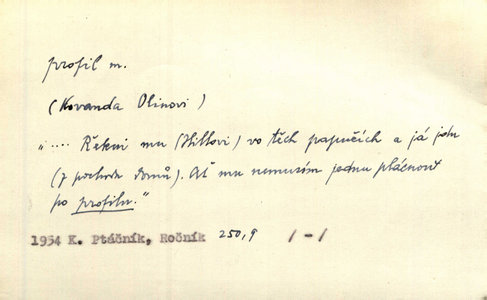 profil m.
(Kovanda Olinovi)
".... Řekni mu (Hillovi) vo těch papučích a já jdu
(z pochodu domů). Ať mu nemusím jednu plácnout
po profilu."
1954 K. Ptáčník, Ročník 250,9 1-1